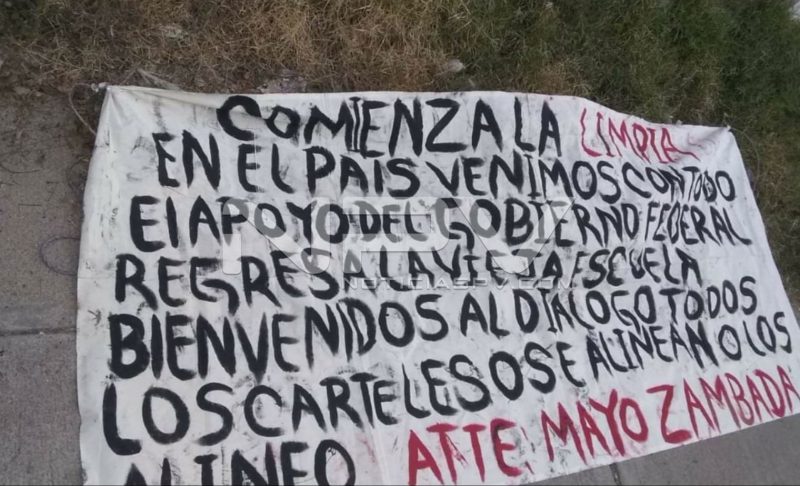 COMIENZA LA LIMPIA
EN EL PAIS VENIMOS CON TODO
El APOYO DEL GOBIERNO FEDERAL
REGRESA LA VIEJA ESCUELA
BIENVENIDOS AL DIALOGO TODOS
LOS CARTELES O SE ALINEAN O LOS
ALINEO ATTE, MAYO ZAMBADA
NPV
NOTICIASPV.COM